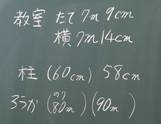 教室 たて 7m 9cm
横 7m 14cm
柱 (60cm) 58cm
ろうか (80m) (90m)